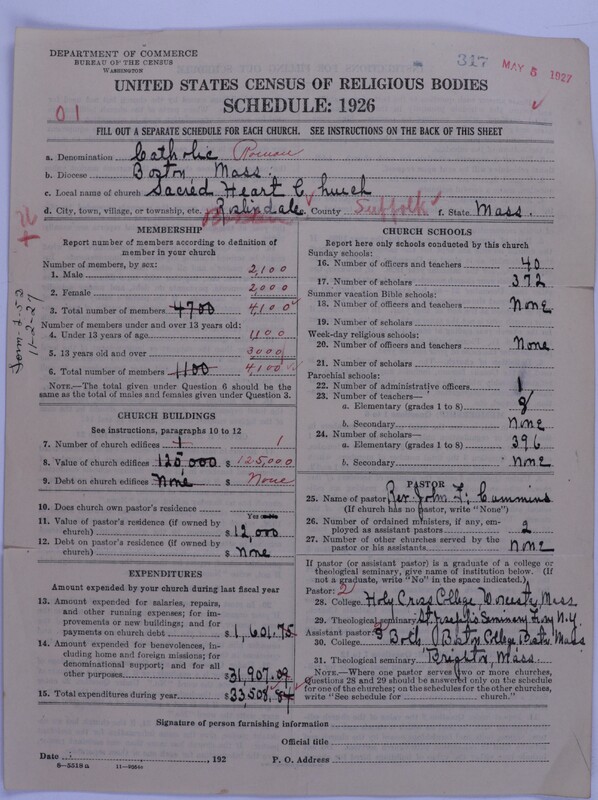 DEPARTMENT OF COMMERCE
BUREAU OF THE CENSUS
WASHINGTON
317 MAY 5 1927
UNITED STATES CENSUS OF RELIGIOUS BODIES
SCHEDULE: 1926
01
FILL OUT A SEPARATE SCHEDULE FOR EACH CHURCH. SEE INSTRUCTIONS ON THE BACK OF THIS SHEET
a. Denomination Catholic Roman
b. Diocese Boston, Mass.
c. Local name of church Sacred Heart Church
d. City, town, village, or township, etc. Roslindale e. County Suffolk f. State Mass.
Form-f-52
11-2-27
MEMBERSHIP
Report number of members according to definition of
member in your church
Number of members, by sex:
1. Male 2,100
2. Female 2,000
3. Total number of members 4700 4100
Number of members under and over 13 years old:
4. Under 13 years of age 1100
5. 13 years old and over 3000
6. Total number of members 1100 4100
NOTE.—The total given under Question 6 should be
the same as the total of males and females given under Question 3.
CHURCH BUILDINGS
See instructions, paragraphs 10 to 12
7. Number of church edifices 1 1
8. Value of church edifices 125,000 $ 125,000
9. Debt on church edifices None $ None
10. Does church own pastor's residence Yes
11. Value of pastor's residence (if owned by
church) $ 12,000
12. Debt on pastor's residence (if owned by
church) $ None
EXPENDITURES
Amount expended by your church during last fiscal year
13. Amount expended for salaries, repairs,
and other running expenses; for im-
provements or new buildings; and for
payments on church debt $ 1,601.75
14. Amount expended for benevolences, in-
cluding home and foreign missions; for
denominational support; and for all
other purposes $ 31,907.09
15. Total expenditures during year $ 33,508.84
CHURCH SCHOOLS
Report here only schools conducted by this church
Sunday schools:
16. Number of officers and teachers 40
17. Number of scholars 372
Summer vacation Bible schools:
18. Number of officers and teachers None
19. Number of scholars
Week-day religious schools:
20. Number of officers and teachers None
21. Number of scholars
Parochial schools:
22. Number of administrative officers 1
23. Number of teachers—
a. Elementary (grades 1 to 8)
b. Secondary None
24. Number of scholars—
a. Elementary (grades 1 to 8) 396
b. Secondary None
PASTOR
25. Name of pastor Rev. John F. Cummins
(If church has no pastor, write "None")
26. Number of ordained ministers, if any, em-
ployed as assistant pastors 2
27. Number of other churches served by the
pastor or his assistants None
If pastor (or assistant pastor) is a graduate of a college or
theological seminary, give name of institution below. (If
not a graduate, write "No" in the space indicated.)
Pastor: 2
28. College Holy Cross College Worcester Mass.
29. Theological seminary St. Joseph's Seminary Troy N.Y.
Assistant pastor:
30. College Both Boston College Boston Mass
31. Theological seminary Brighton, Mass.
NOTE.—Where one pastor serves two or more churches,
Questions 28 and 29 should be answered only on the schedule
for one of the churches; on the schedules for the other churches,
write "See schedule for church."
Signature of person furnishing information
Official title
Date , 192 P. O. Address
8—5518a